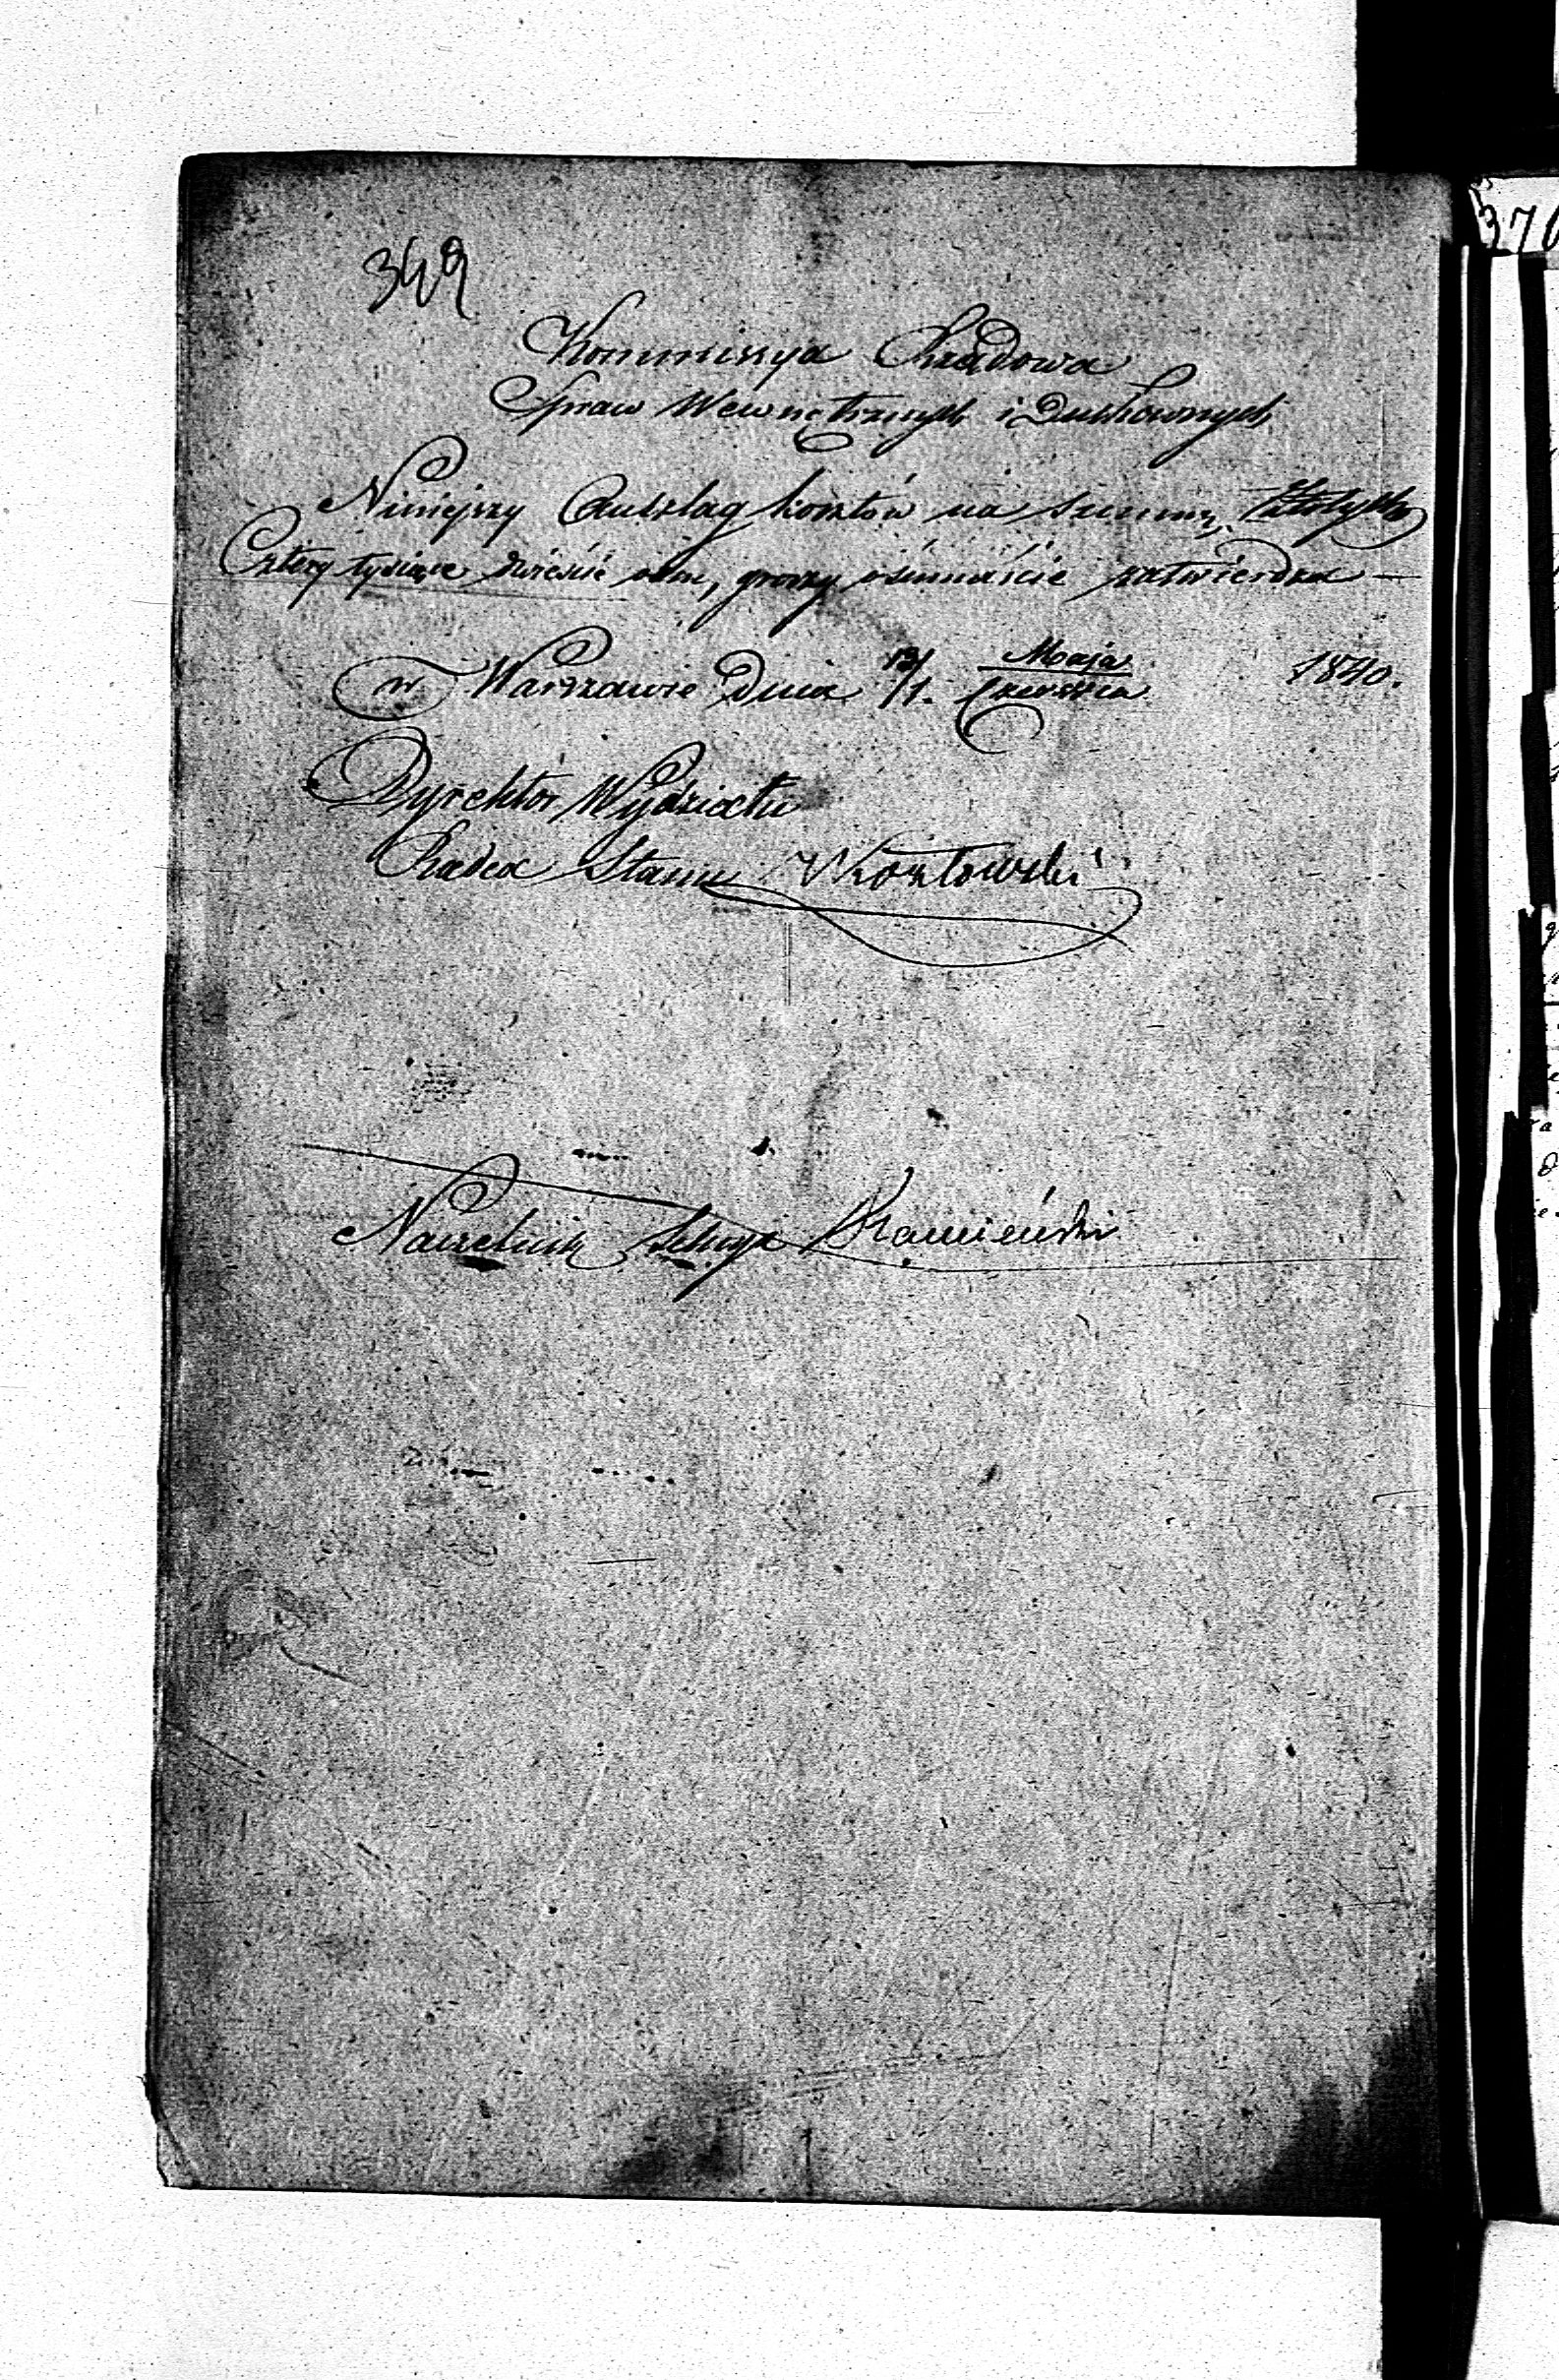 349
370
Kommissya Rządowa
Spraw Wewnętrznych i Duchownych
Niniejszy Anszlag kosztów na summę Złotych
Cztery tysiące dwieście ośm, groszy ośmnaście zatwierdza —
w Warszawie Dnia 31/1. Maja/Czerwca 1840.
Dyrektor Wydziału
Radca Stanu Kozłowski
Naczelnik Sekcyi Kamieński